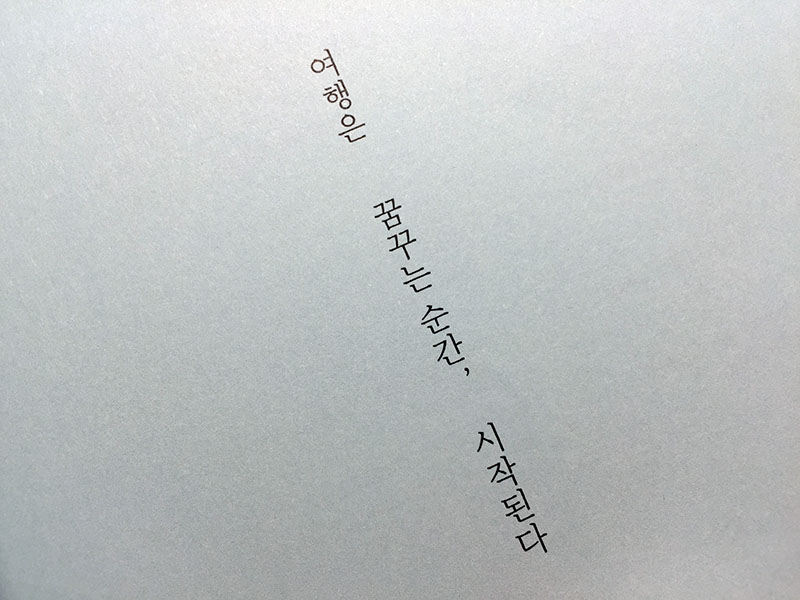 여행은 꿈꾸는 순간, 시작된다